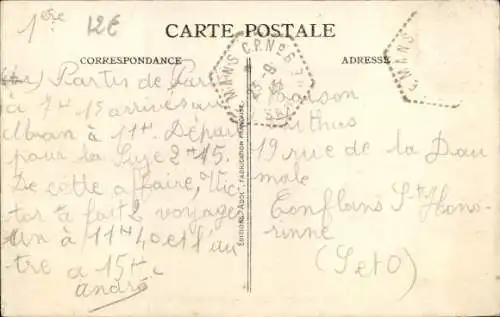 1ère
12€
CARTE POSTALE
CORRESPONDANCE
ADRESSE
MANS C.P. N°6
23-8
MANS
Partis de Paris
à 7h15 arrivés au
Mans à 11h. Départ
pour la Suze 2h15.
De cette affaire, Vic
tor a fait 2 voyages
un à 11h40 et l'au
tre à 15h
André
Maison
19 rue de la Dau
male
Conflans Ste Hono
rinne
(S et O)
FABRICATION FRANÇAISE